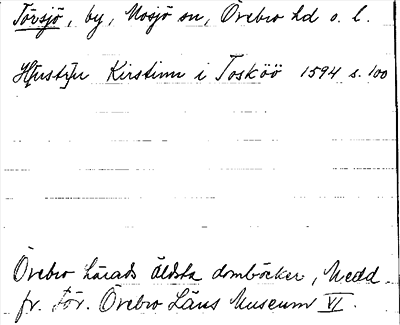 Törsjö, by, Mosjö sn, Örebro hd o. l.
H[ust]ru Kirstinn i Tosköö 1594 s. 100
Örebro härads äldsta domböcker, Medd.
fr. För. Örebro Läns Museum VI.